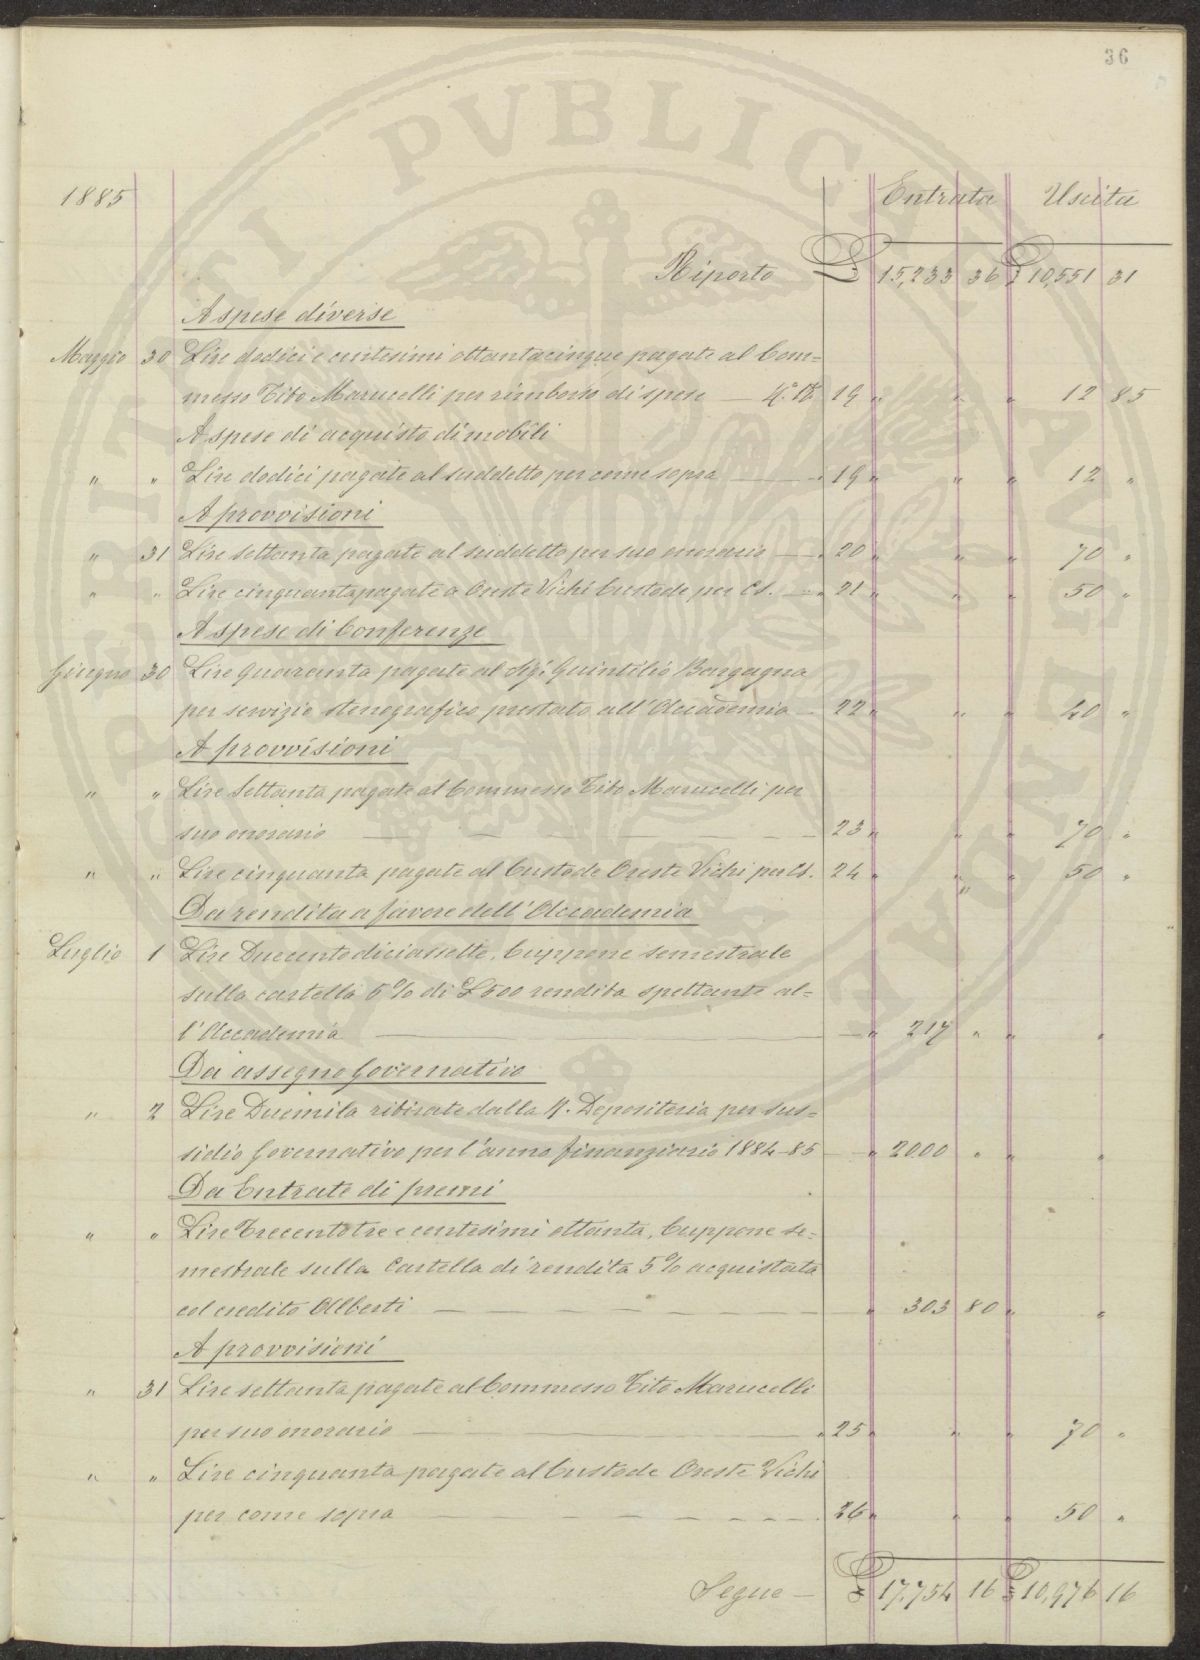 36
1885 Entrata Uscita
Riporto £ 15,233 36 £ 10,551 31
A spese diverse
Maggio 30 Lire dodici e centesimi ottantacinque pagate al Com=
messo Tito Marucelli per rimborso di spese — 19 " " " 12 85
A spese di acquisto di mobili
" " Lire dodici pagate al suddetto per come sopra — " 19 " " " 12 "
A provvisioni
" 31 Lire settanta pagate al suddetto per suo onorario — " 20 " " " 70 "
" " Lire cinquanta pagate a Oreste Vichi Custode per Cs. — " 21 " " " 50 "
A spese di Conferenze
Giugno 30 Lire Quaranta pagate al Sig: Quintilio Bargagna
per servizio stenografico prestato all'Accademia — 22 " " " 40 "
A provvisioni
" " Lire Settanta pagate al Commesso Tito Marucelli per
suo onorario — 23 " " " 70 "
" " Lire cinquanta pagate al Custode Oreste Vichi per Cs. 24 " " " 50 "
Da rendita a favore dell'Accademia
Luglio 1 Lire Duecentodiciassette, Cuppone semestrale
sulla cartella 5% di £500 rendita spettante al=
l'Accademia — " 217 " " "
Da assegno Governativo
" 2 Lire Duemila ritirate dalla R. Depositeria per sus=
sidio Governativo per l'anno finanziario 1884-85 — " 2000 " " "
Da Entrate di premi
" " Lire Trecentotre e centesimi ottanta, Cuppone se=
mestrale sulla Cartella di rendita 5% acquistata
col credito Alberti — " 303 80 " "
A provvisioni
" 31 Lire settanta pagate al Commesso Tito Marucelli
per suo onorario — " 25 " " " 70 "
" " Lire cinquanta pagate al Custode Oreste Vichi
per come sopra — 26 " " " 50 "
Segue — £ 17,754 16 £ 10,976 16